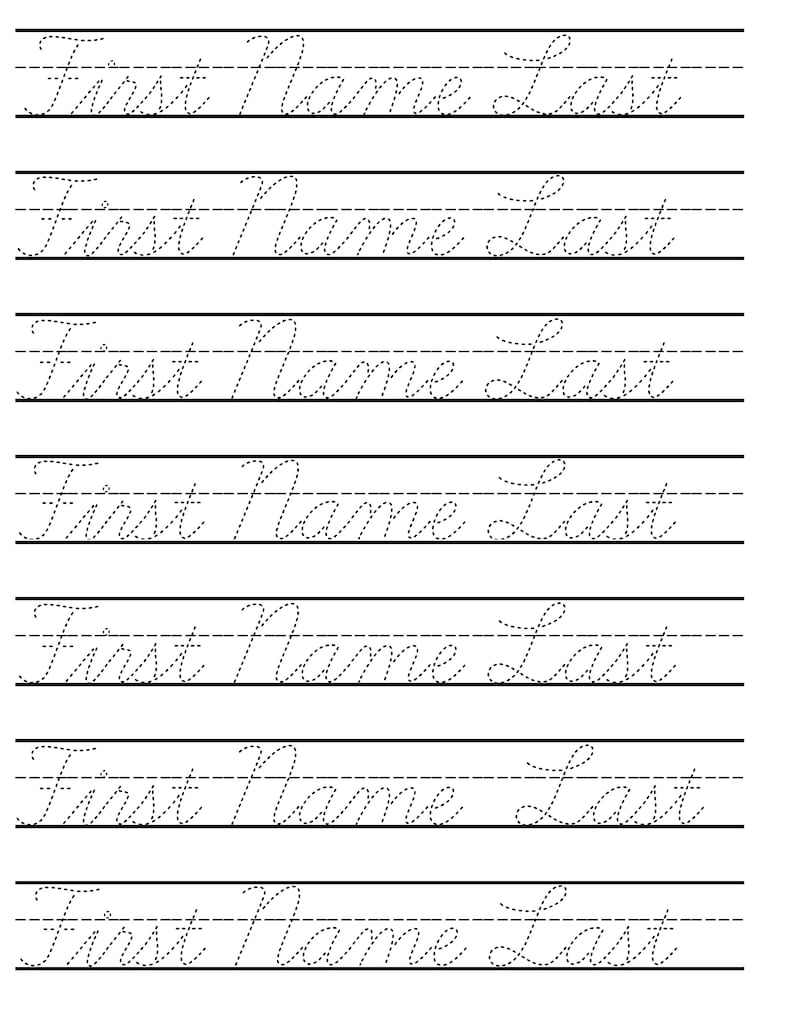 First Name Last
First Name Last
First Name Last
First Name Last
First Name Last
First Name Last
First Name Last